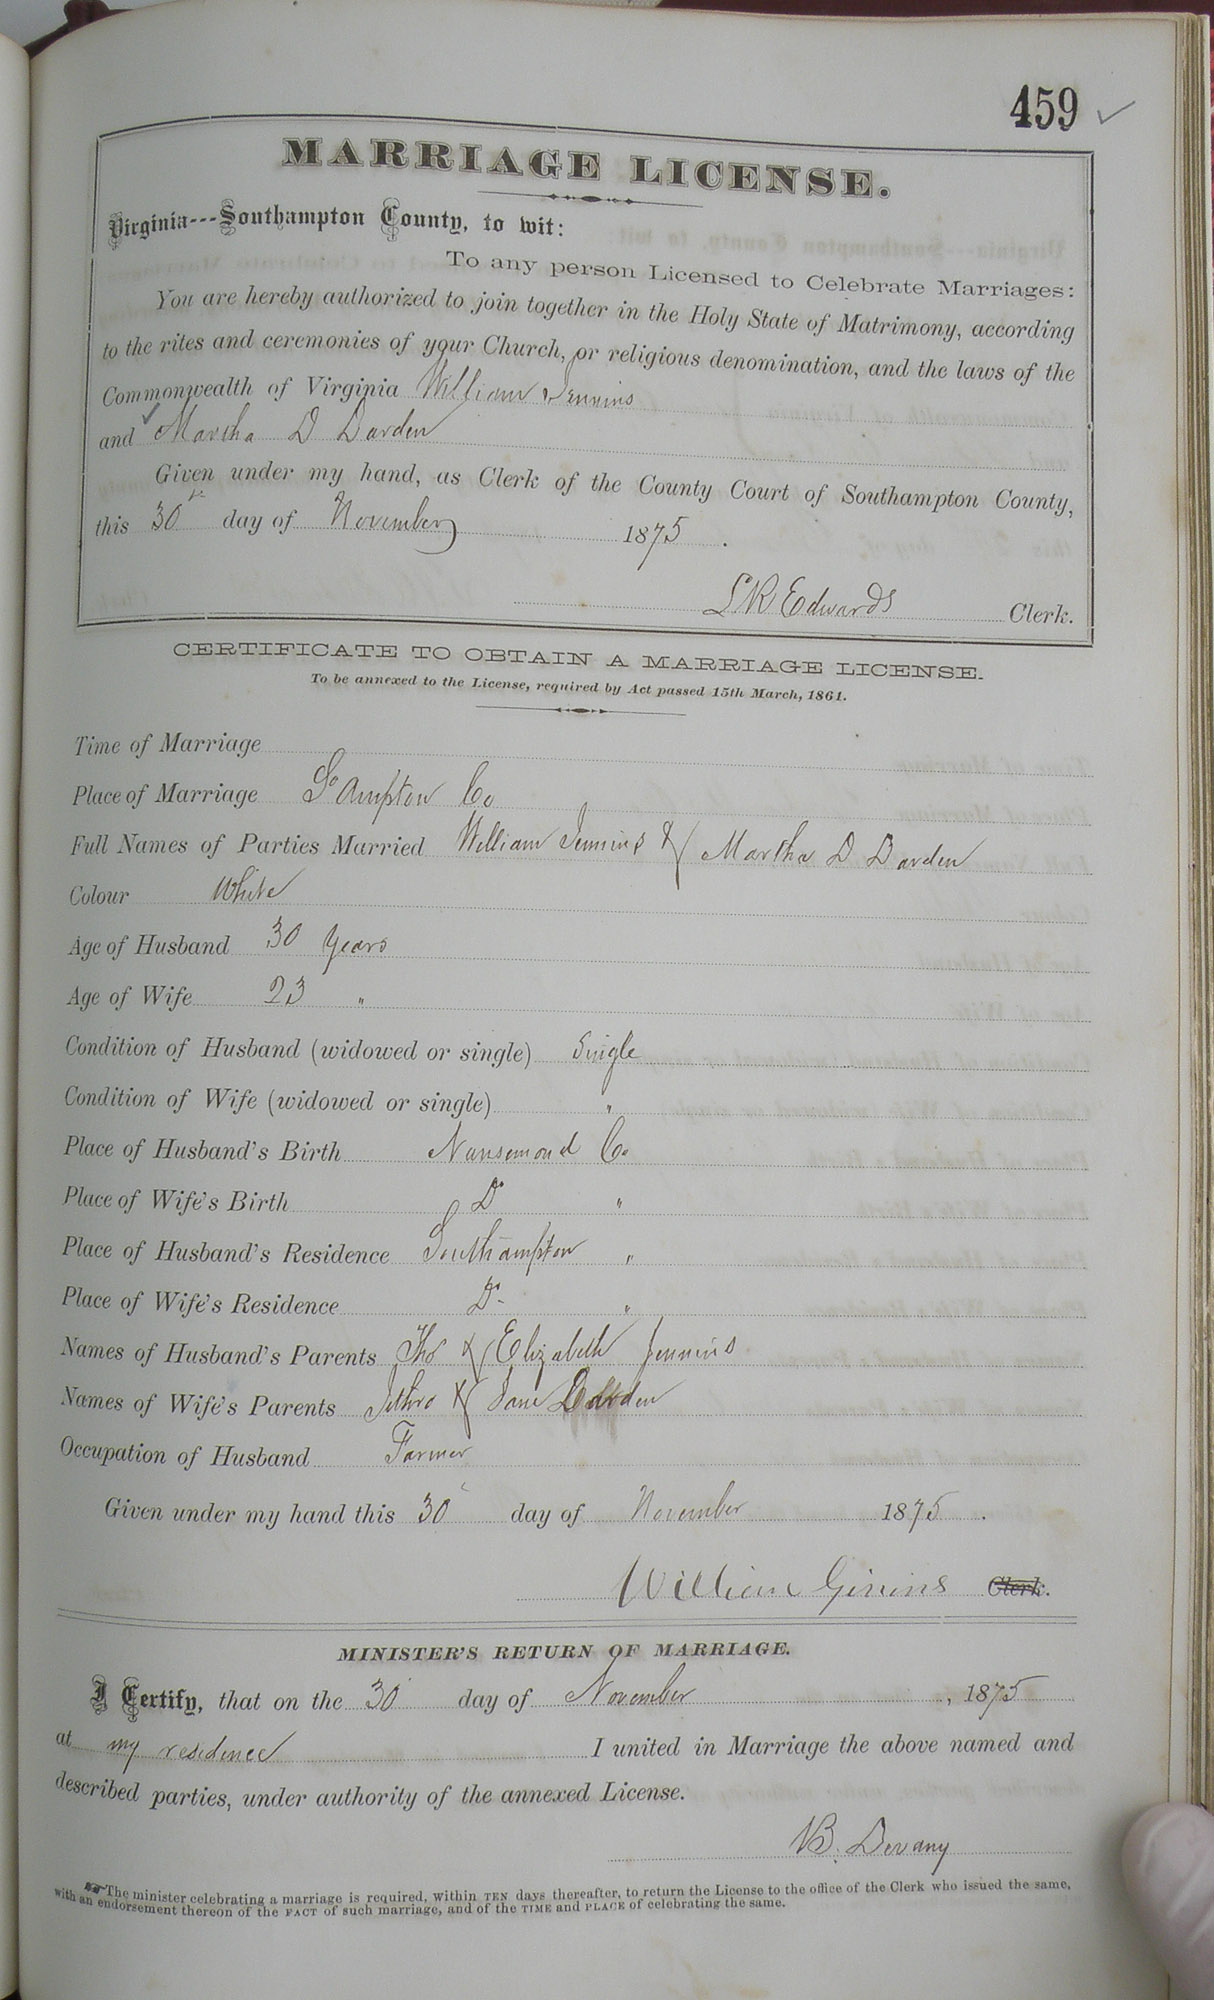 459
MARRIAGE LICENSE.
Virginia---Southampton County, to wit:
To any person Licensed to Celebrate Marriages:
You are hereby authorized to join together in the Holy State of Matrimony, according
to the rites and ceremonies of your Church, or religious denomination, and the laws of the
Commonwealth of Virginia William Jennins
and Martha D Darden
Given under my hand, as Clerk of the County Court of Southampton County,
this 30 day of November 1875.
L R Edwards Clerk.
CERTIFICATE TO OBTAIN A MARRIAGE LICENSE.
To be annexed to the License, required by Act passed 15th March, 1861.
Time of Marriage
Place of Marriage So Ampton Co
Full Names of Parties Married William Jennins & Martha D Darden
Colour White
Age of Husband 30 Years
Age of Wife 23 "
Condition of Husband (widowed or single) Single
Condition of Wife (widowed or single) "
Place of Husband's Birth Nansemond Co
Place of Wife's Birth Do "
Place of Husband's Residence Southampton "
Place of Wife's Residence Do "
Names of Husband's Parents Tho & Elizabeth Jennins
Names of Wife's Parents Jethro & Jane Darden
Occupation of Husband Farmer
Given under my hand this 30 day of November 1875.
William Ginins Clerk.
MINISTER'S RETURN OF MARRIAGE.
I Certify, that on the 30 day of November, 1875
at my residence I united in Marriage the above named and
described parties, under authority of the annexed License.
B. Devany
The minister celebrating a marriage is required, within TEN days thereafter, to return the License to the office of the Clerk who issued the same,
with an endorsement thereon of the FACT of such marriage, and of the TIME and PLACE of celebrating the same.